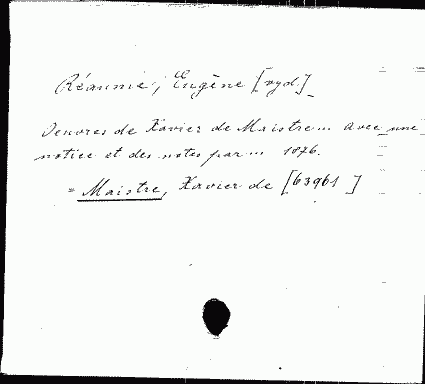 Réaume, Eugène [vyd.]
Oeuvres de Xavier de Maistre... avec une
notice et des notes par... 1876.
= Maistre, Xavier de [63961]